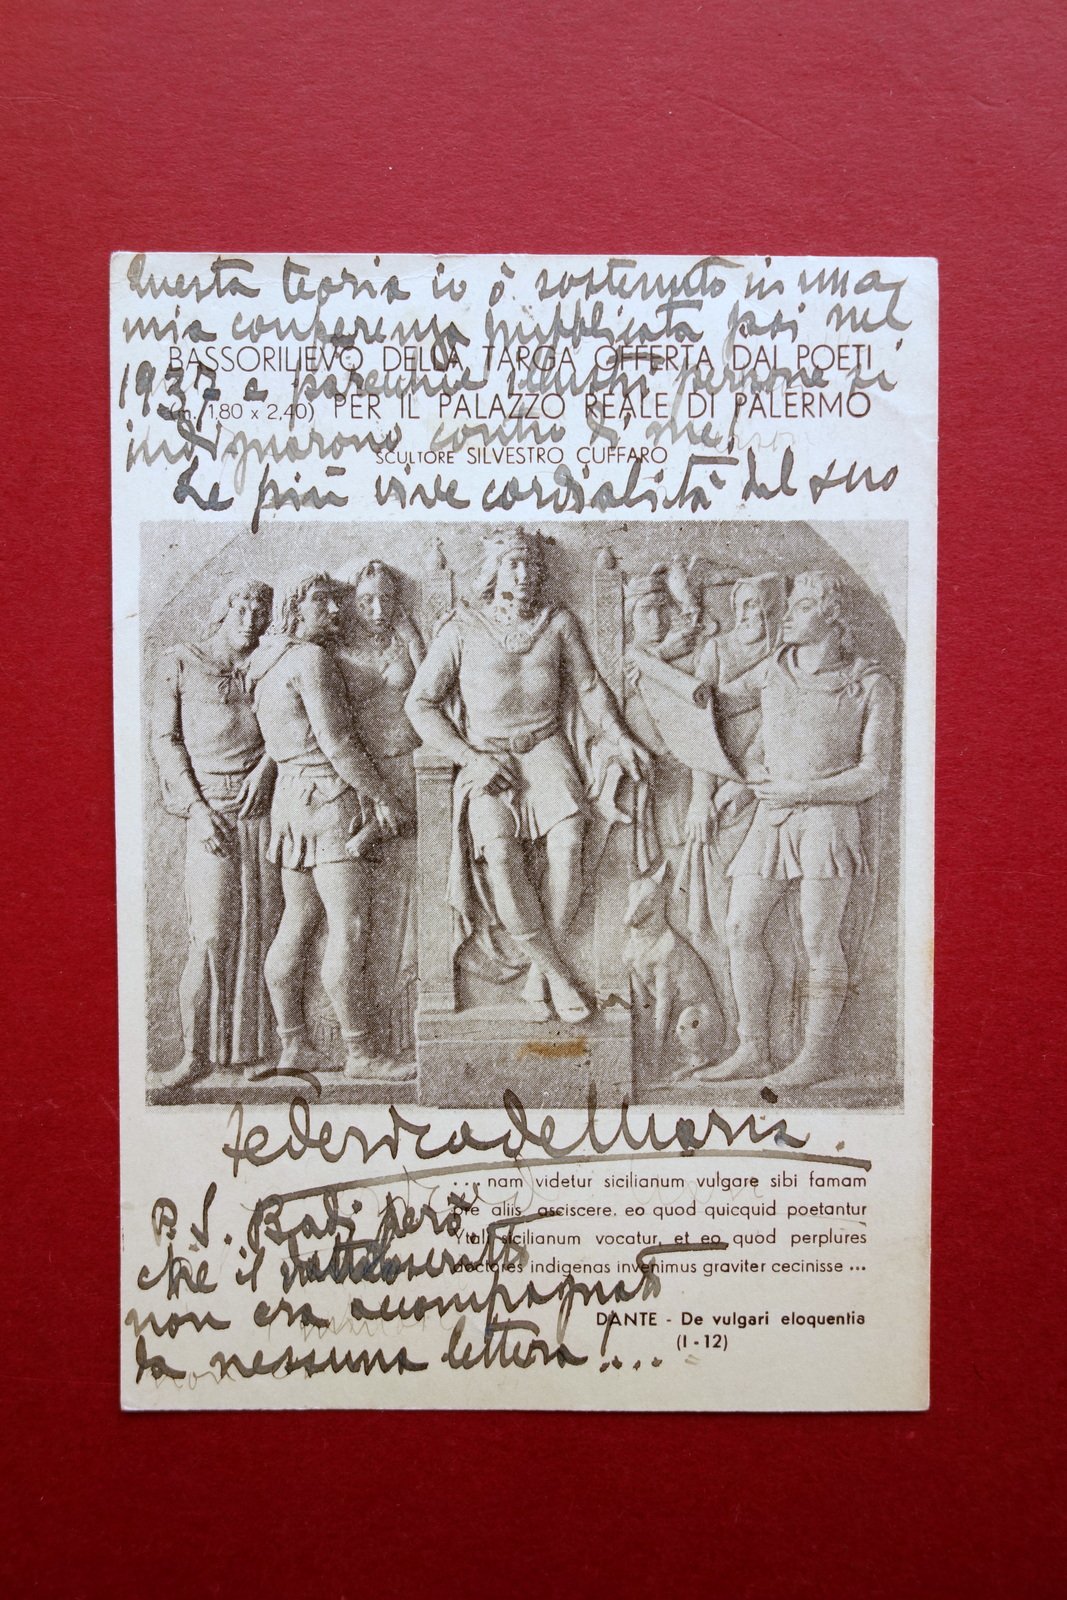 Questa teoria io ò sostenuto in una
mia conferenza pubblicata poi nel
BASSORILIEVO DELLA TARGA OFFERTA DAI POETI
1937 e parecchie persone si
(m. 1,80 x 2,40) PER IL PALAZZO REALE DI PALERMO
indignarono contro di me!
SCULTORE SILVESTRO CUFFARO
Le più vive cordialità del suo
Federico de Maria.
... nam videtur sicilianum vulgare sibi famam
pre aliis asciscere, eo quod quicquid poetantur
Ytali sicilianum vocatur, et eo quod perplures
doctores indigenas invenimus graviter cecinisse ...
DANTE - De vulgari eloquentia
(I - 12)
P. S. Badi però
che il
non era accompagnato
da nessuna lettera....